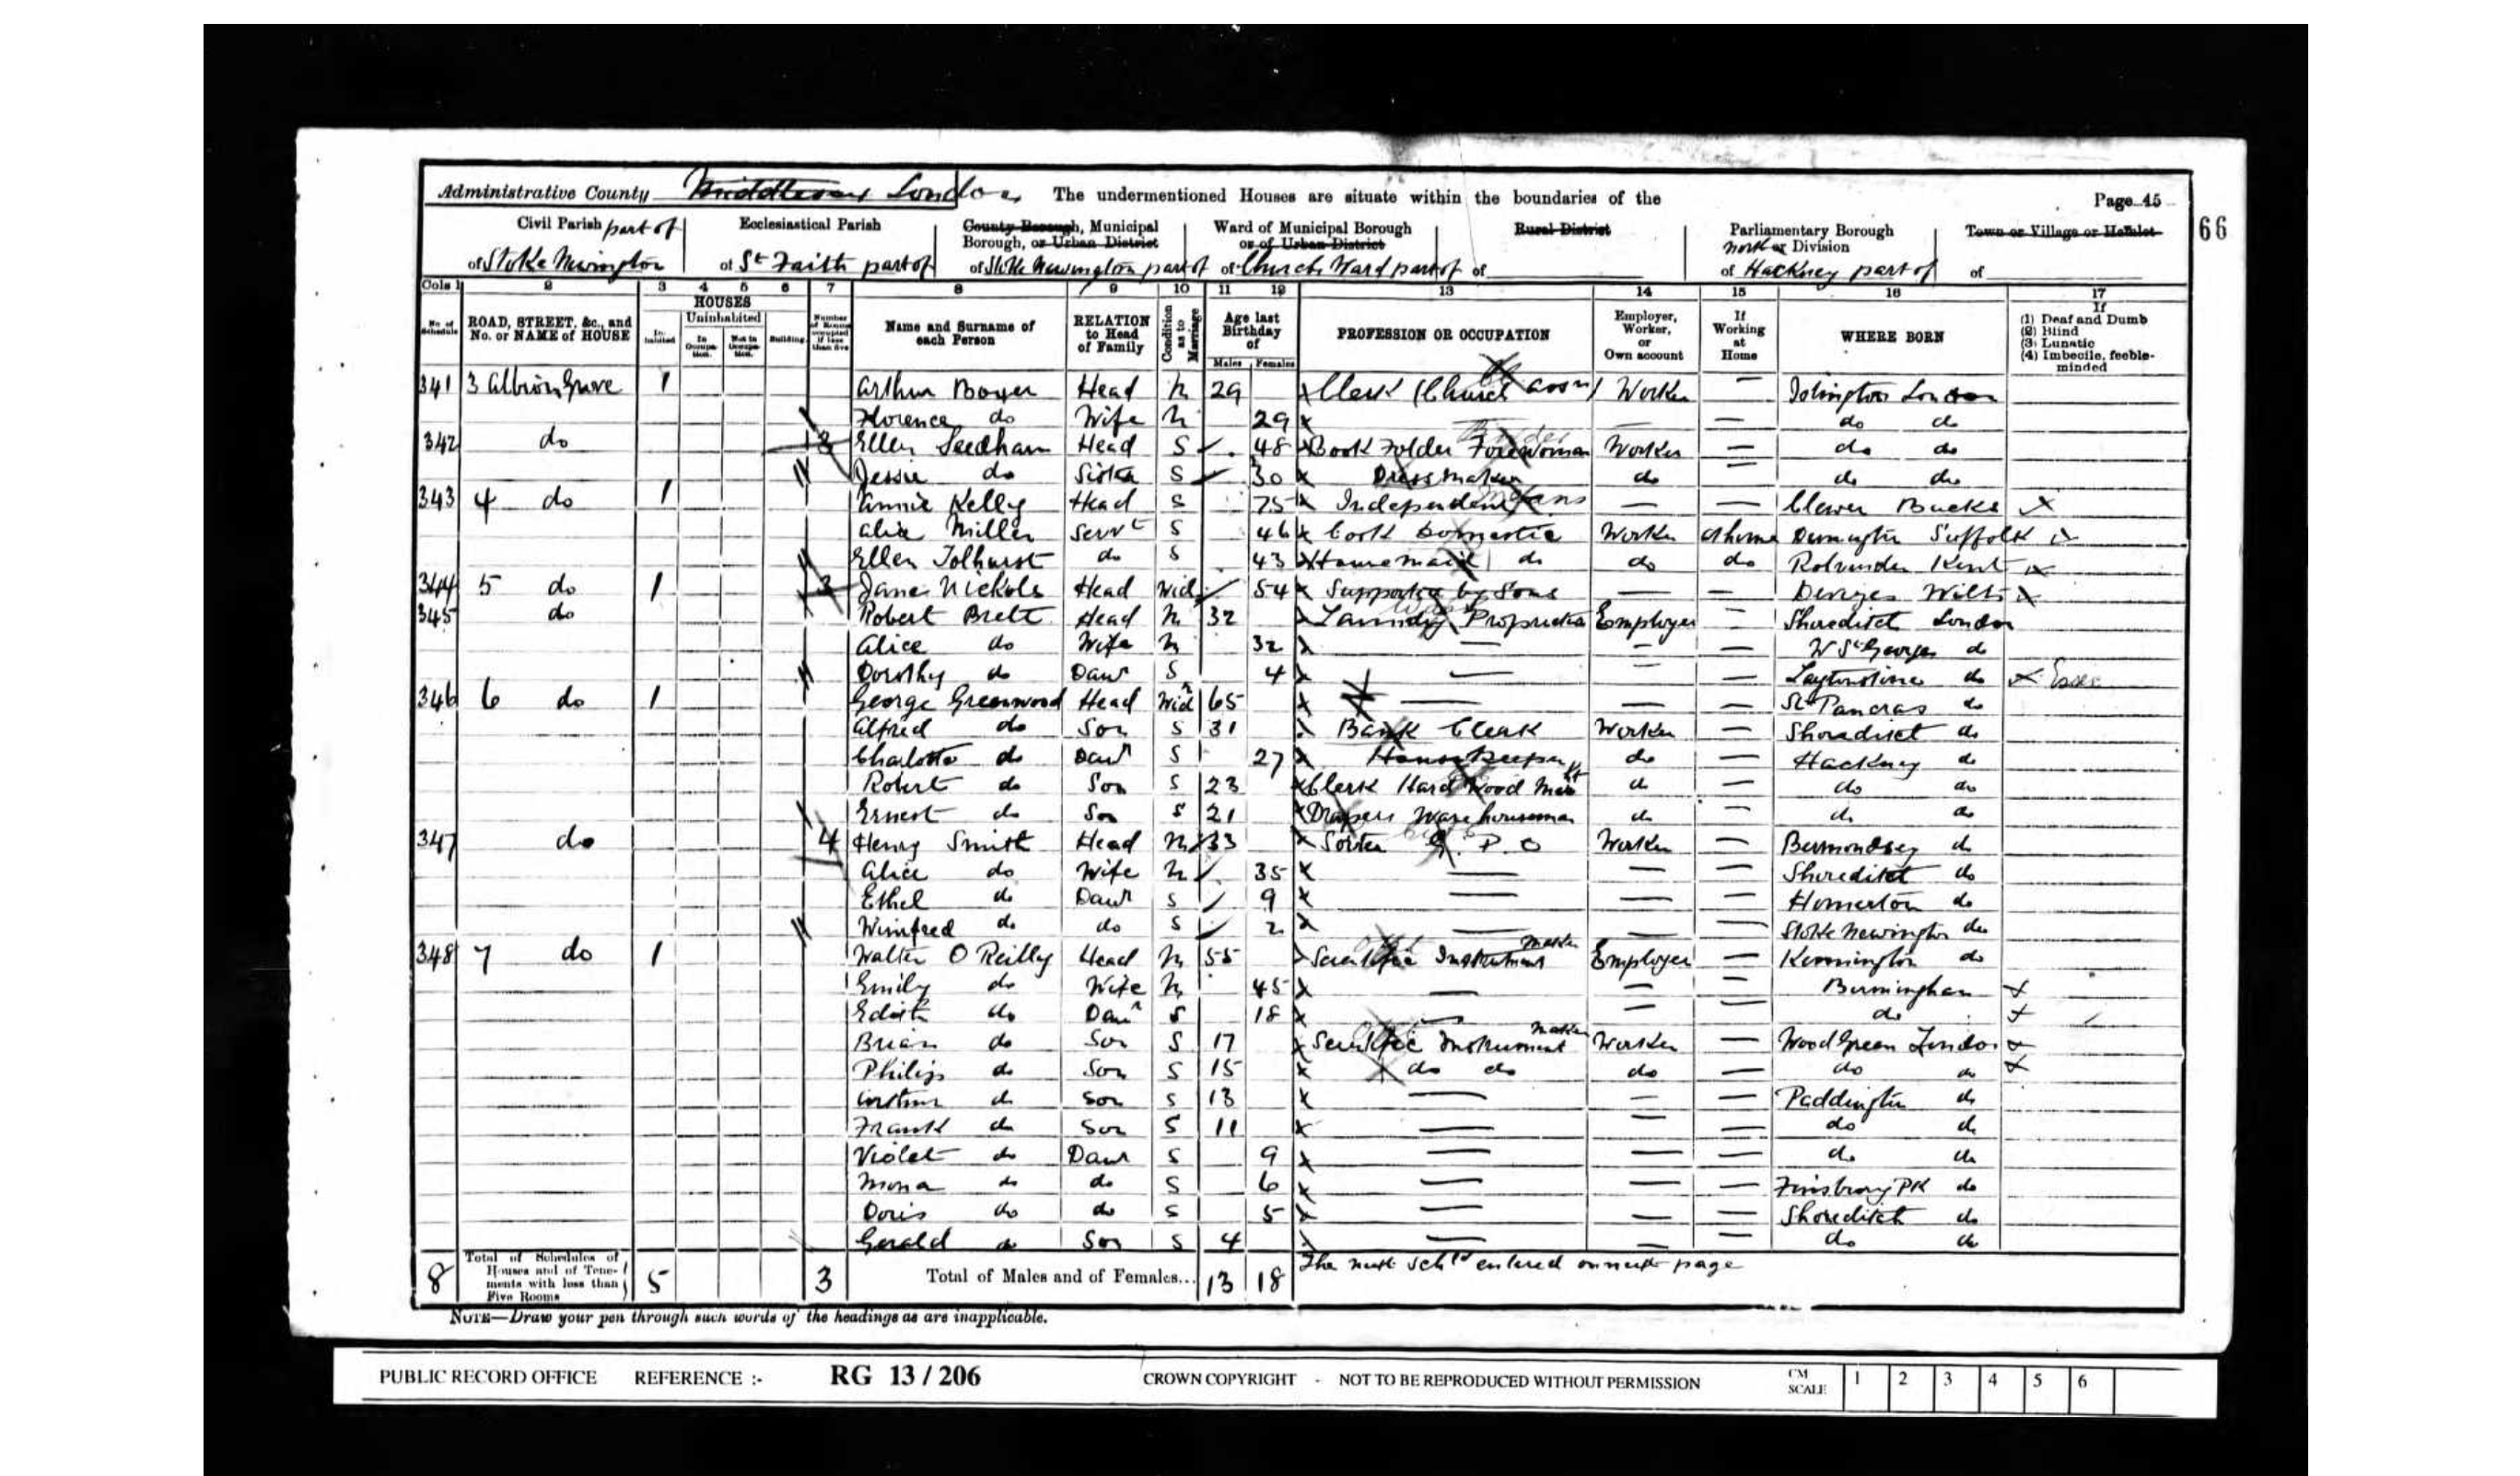 Administrative County Middlesex London The undermentioned Houses are situate within the boundaries of the Page 45
66
Civil Parish part of Ecclesiastical Parish County Borough, Municipal Borough, or Urban District Ward of Municipal Borough or of Urban District Rural District Parliamentary Borough or Division Town or Village or Hamlet
of Stoke Newington of St Faith part of of Stoke Newington part of of Church Ward part of of of Hackney part of of
Cols 1 2 3 4 5 6 7 8 9 10 11 12 13 14 15 16 17
No. of Schedule ROAD, STREET, &c., and No. or NAME of HOUSE HOUSES In-habited Uninhabited In Occupa-tion. Not in Occupa-tion. Building. Number of Rooms occupied if less than five Name and Surname of each Person RELATION to Head of Family Condition as to Marriage Age last Birthday of Males Females PROFESSION OR OCCUPATION Employer, Worker, or Own account If Working at Home WHERE BORN If (1) Deaf and Dumb (2) Blind (3) Lunatic (4) Imbecile, feeble-minded
341 3 Albion Grove 1 Arthur Head M 29 Clerk (Church assn) Worker — Islington London
Florence do Wife M 29 — do do
342 do 3 Ellen Head S 48 Book Folder Forewoman Worker — do do
Jessie do Sister S 30 Dressmaker do — do do
343 4 do 1 Annie Kelly Head S 75 Independent means — — Clewer Bucks
Alice Miller Servt S 46 Cook Domestic Worker at home Suffolk
Ellen Tolhurst do S 43 Housemaid do do do Kent
344 5 do 1 3 Jane Nickols Head Wid 54 Supported by Sons — — Devizes Wilts
345 do Robert Brett Head M 32 Laundry Proprietor Employer — Shoreditch London
Alice do Wife M 32 — — — St Georges do
Dorothy do Daur S 4 — — — Leytonstone do Essex
346 6 do 1 George Greenwood Head Widr 65 — — — St Pancras do
Alfred do Son S 31 Bank Clerk Worker — Shoreditch do
Charlotte do Daur S 27 Housekeeper do — Hackney do
Robert do Son S 23 Clerk Hard Wood do — do do
Ernest do Son S 21 Drapers Warehouseman do — do do
347 do 4 Henry Smith Head M 33 Sorter G. P. O Worker — Bermondsey do
Alice do Wife M 35 — — — Shoreditch do
Ethel do Daur S 9 — — — Homerton do
Winifred do do S 2 — — — Stoke Newington do
348 7 do 1 Walter O Reilly Head M 55 Scientific Instrument maker Employer — Kennington do
Emily do Wife M 45 — — — Birmingham
Edith do Daur S 18 — — — do
Brian do Son S 17 Scientific Instrument maker Worker — Wood Green London
Philip do Son S 15 do do do — do do
do Son S 13 — — — Paddington do
Frank do Son S 11 — — — do do
Violet do Daur S 9 — — — do do
Mona do do S 6 — — — Finsbury PK do
Doris do do S 5 — — — Shoreditch do
Gerald do Son S 4 — — — do do
8 Total of Schedules of Houses and of Tene-ments with less than Five Rooms 5 3 Total of Males and of Females... 13 18 The next schd entered on next page
NOTE—Draw your pen through such words of the headings as are inapplicable.
PUBLIC RECORD OFFICE REFERENCE :- RG 13 / 206 CROWN COPYRIGHT - NOT TO BE REPRODUCED WITHOUT PERMISSION CM SCALE 1 2 3 4 5 6